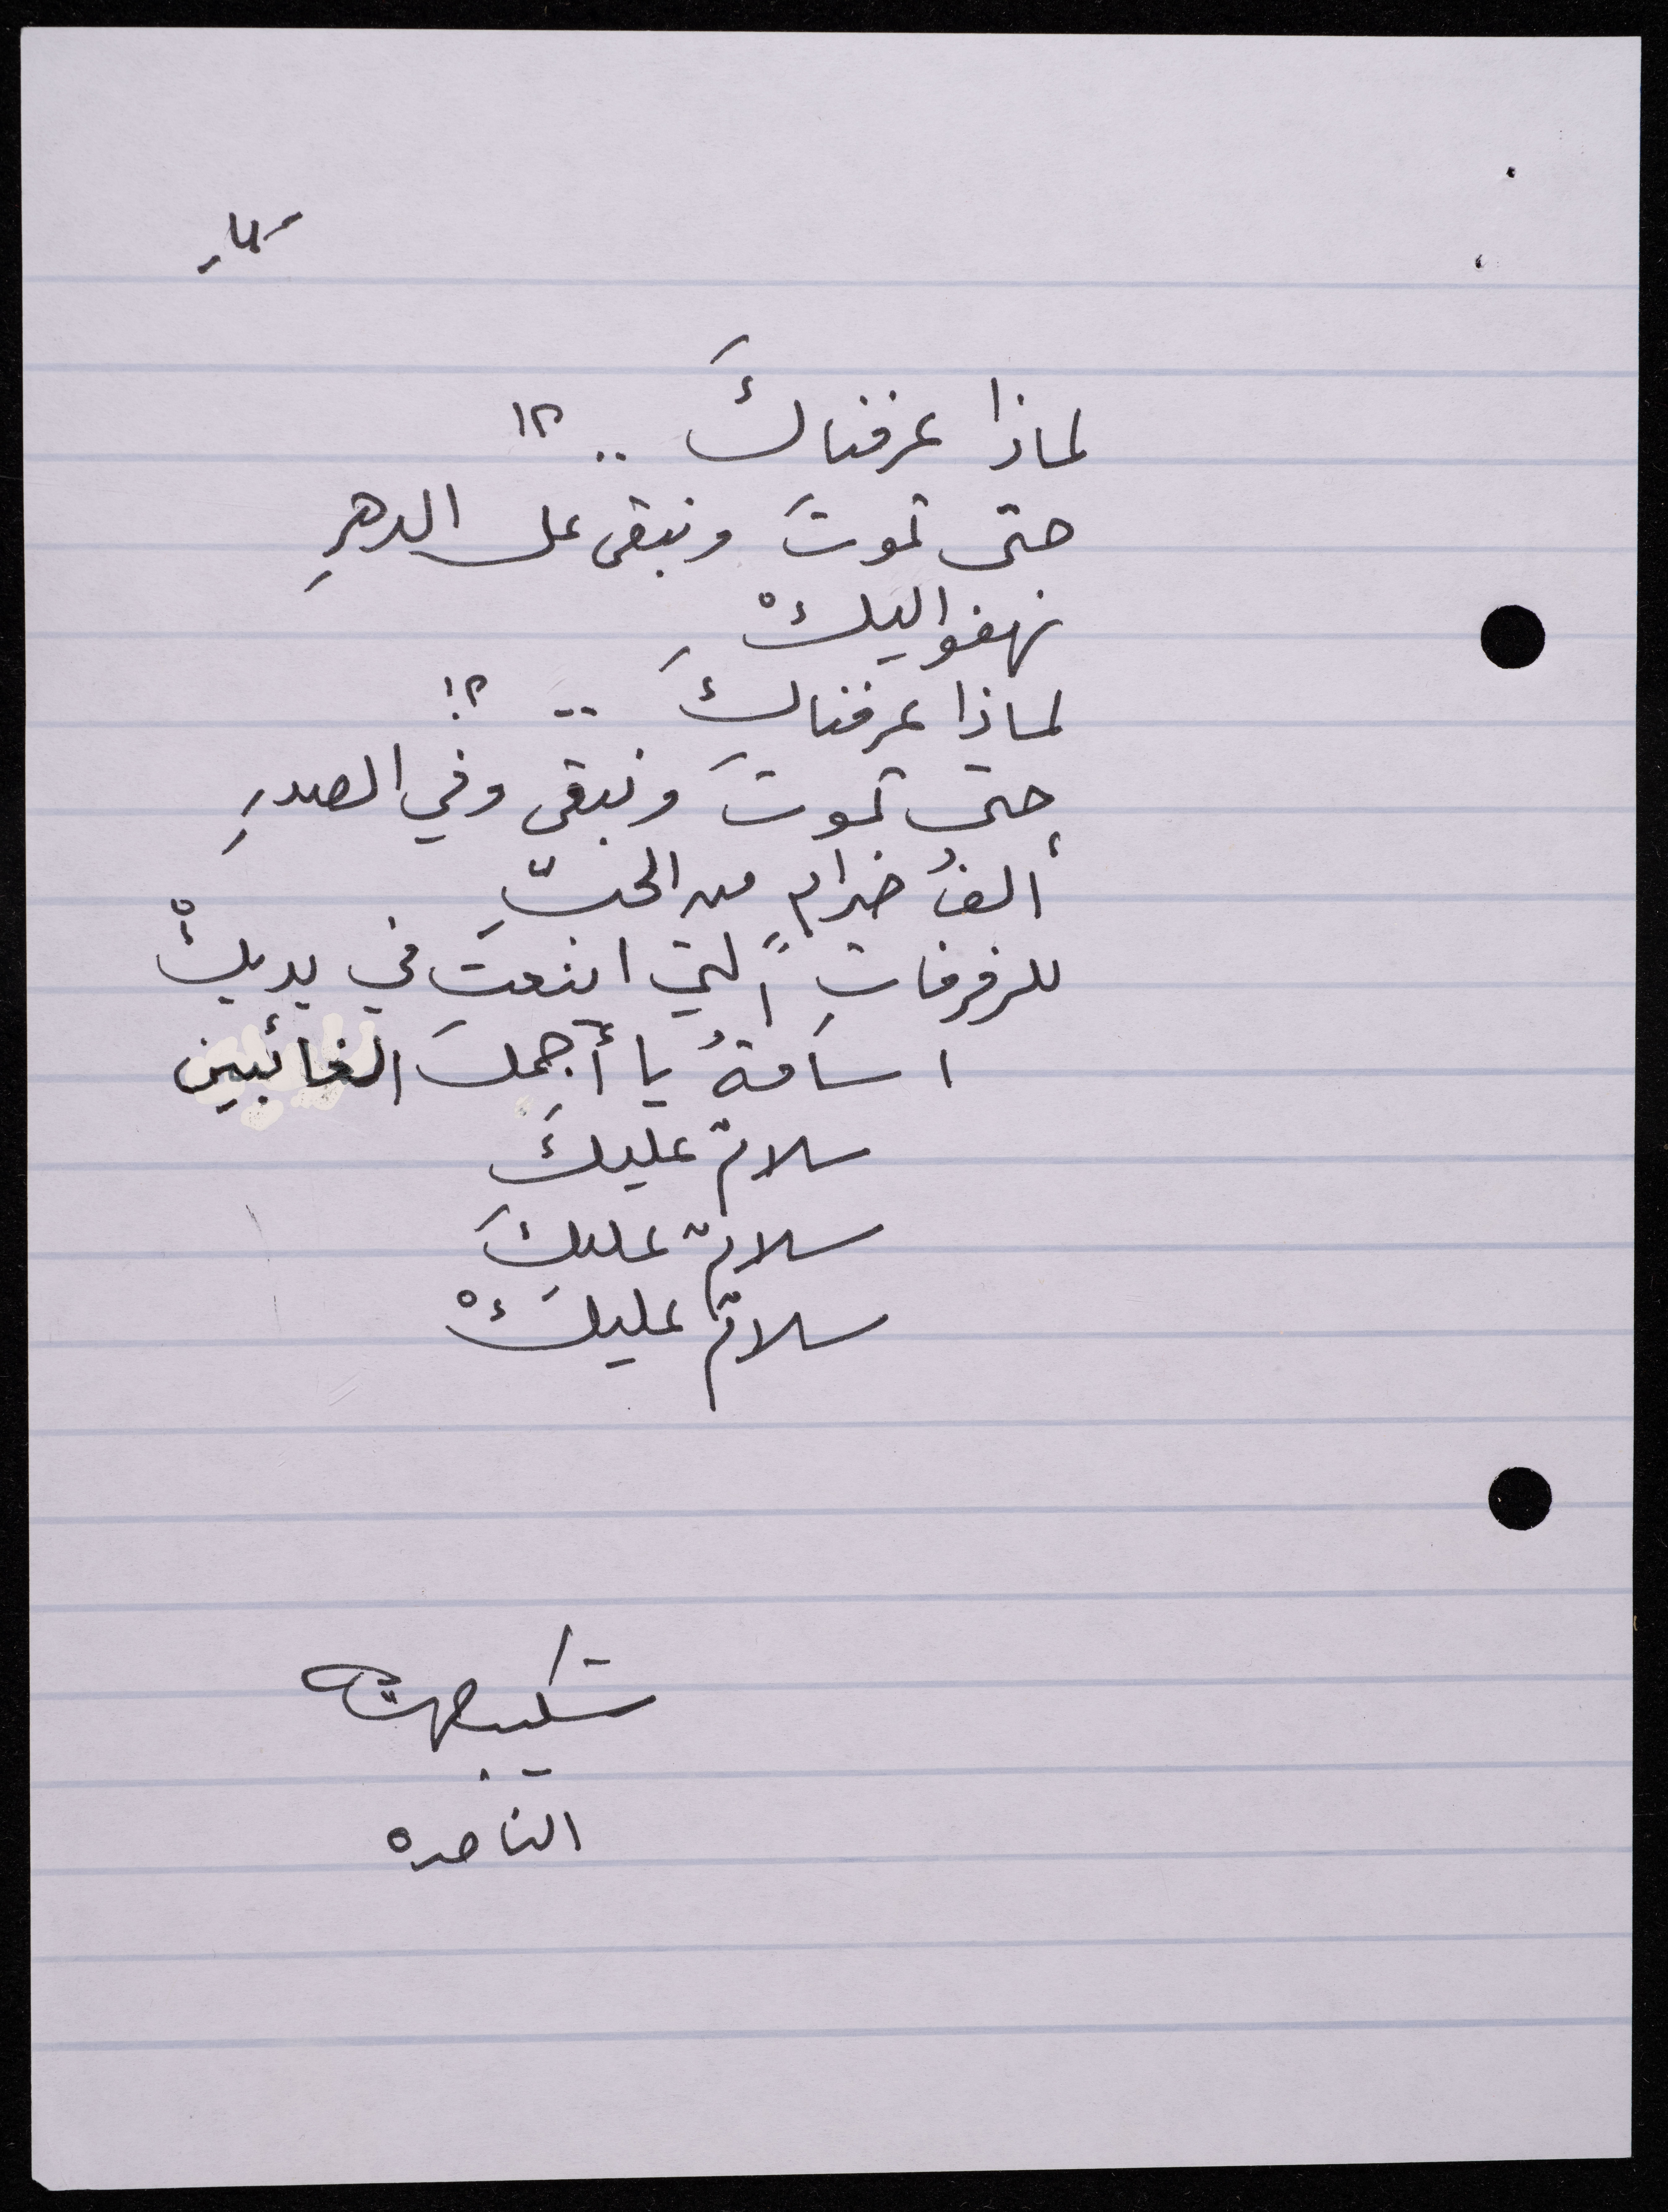 -١٤-
لماذا عرفناكَ .. ؟!
حتى تموتَ ونبقى على الدهرِ
نهفو اليكْ
لماذا عرفناكَ .. ؟!
حتى تموتَ ونبقى وفي الصدرِ
ألفُ ضرامٍ من الحبِّ
للرفرفاتِ التي اينعت في يديكْ
اسامةُ يا أجملَ الغائبين
سلامٌ عليكَ
سلامٌ عليكَ
سلامٌ عليكْ
شكيب جهشان
الناصره